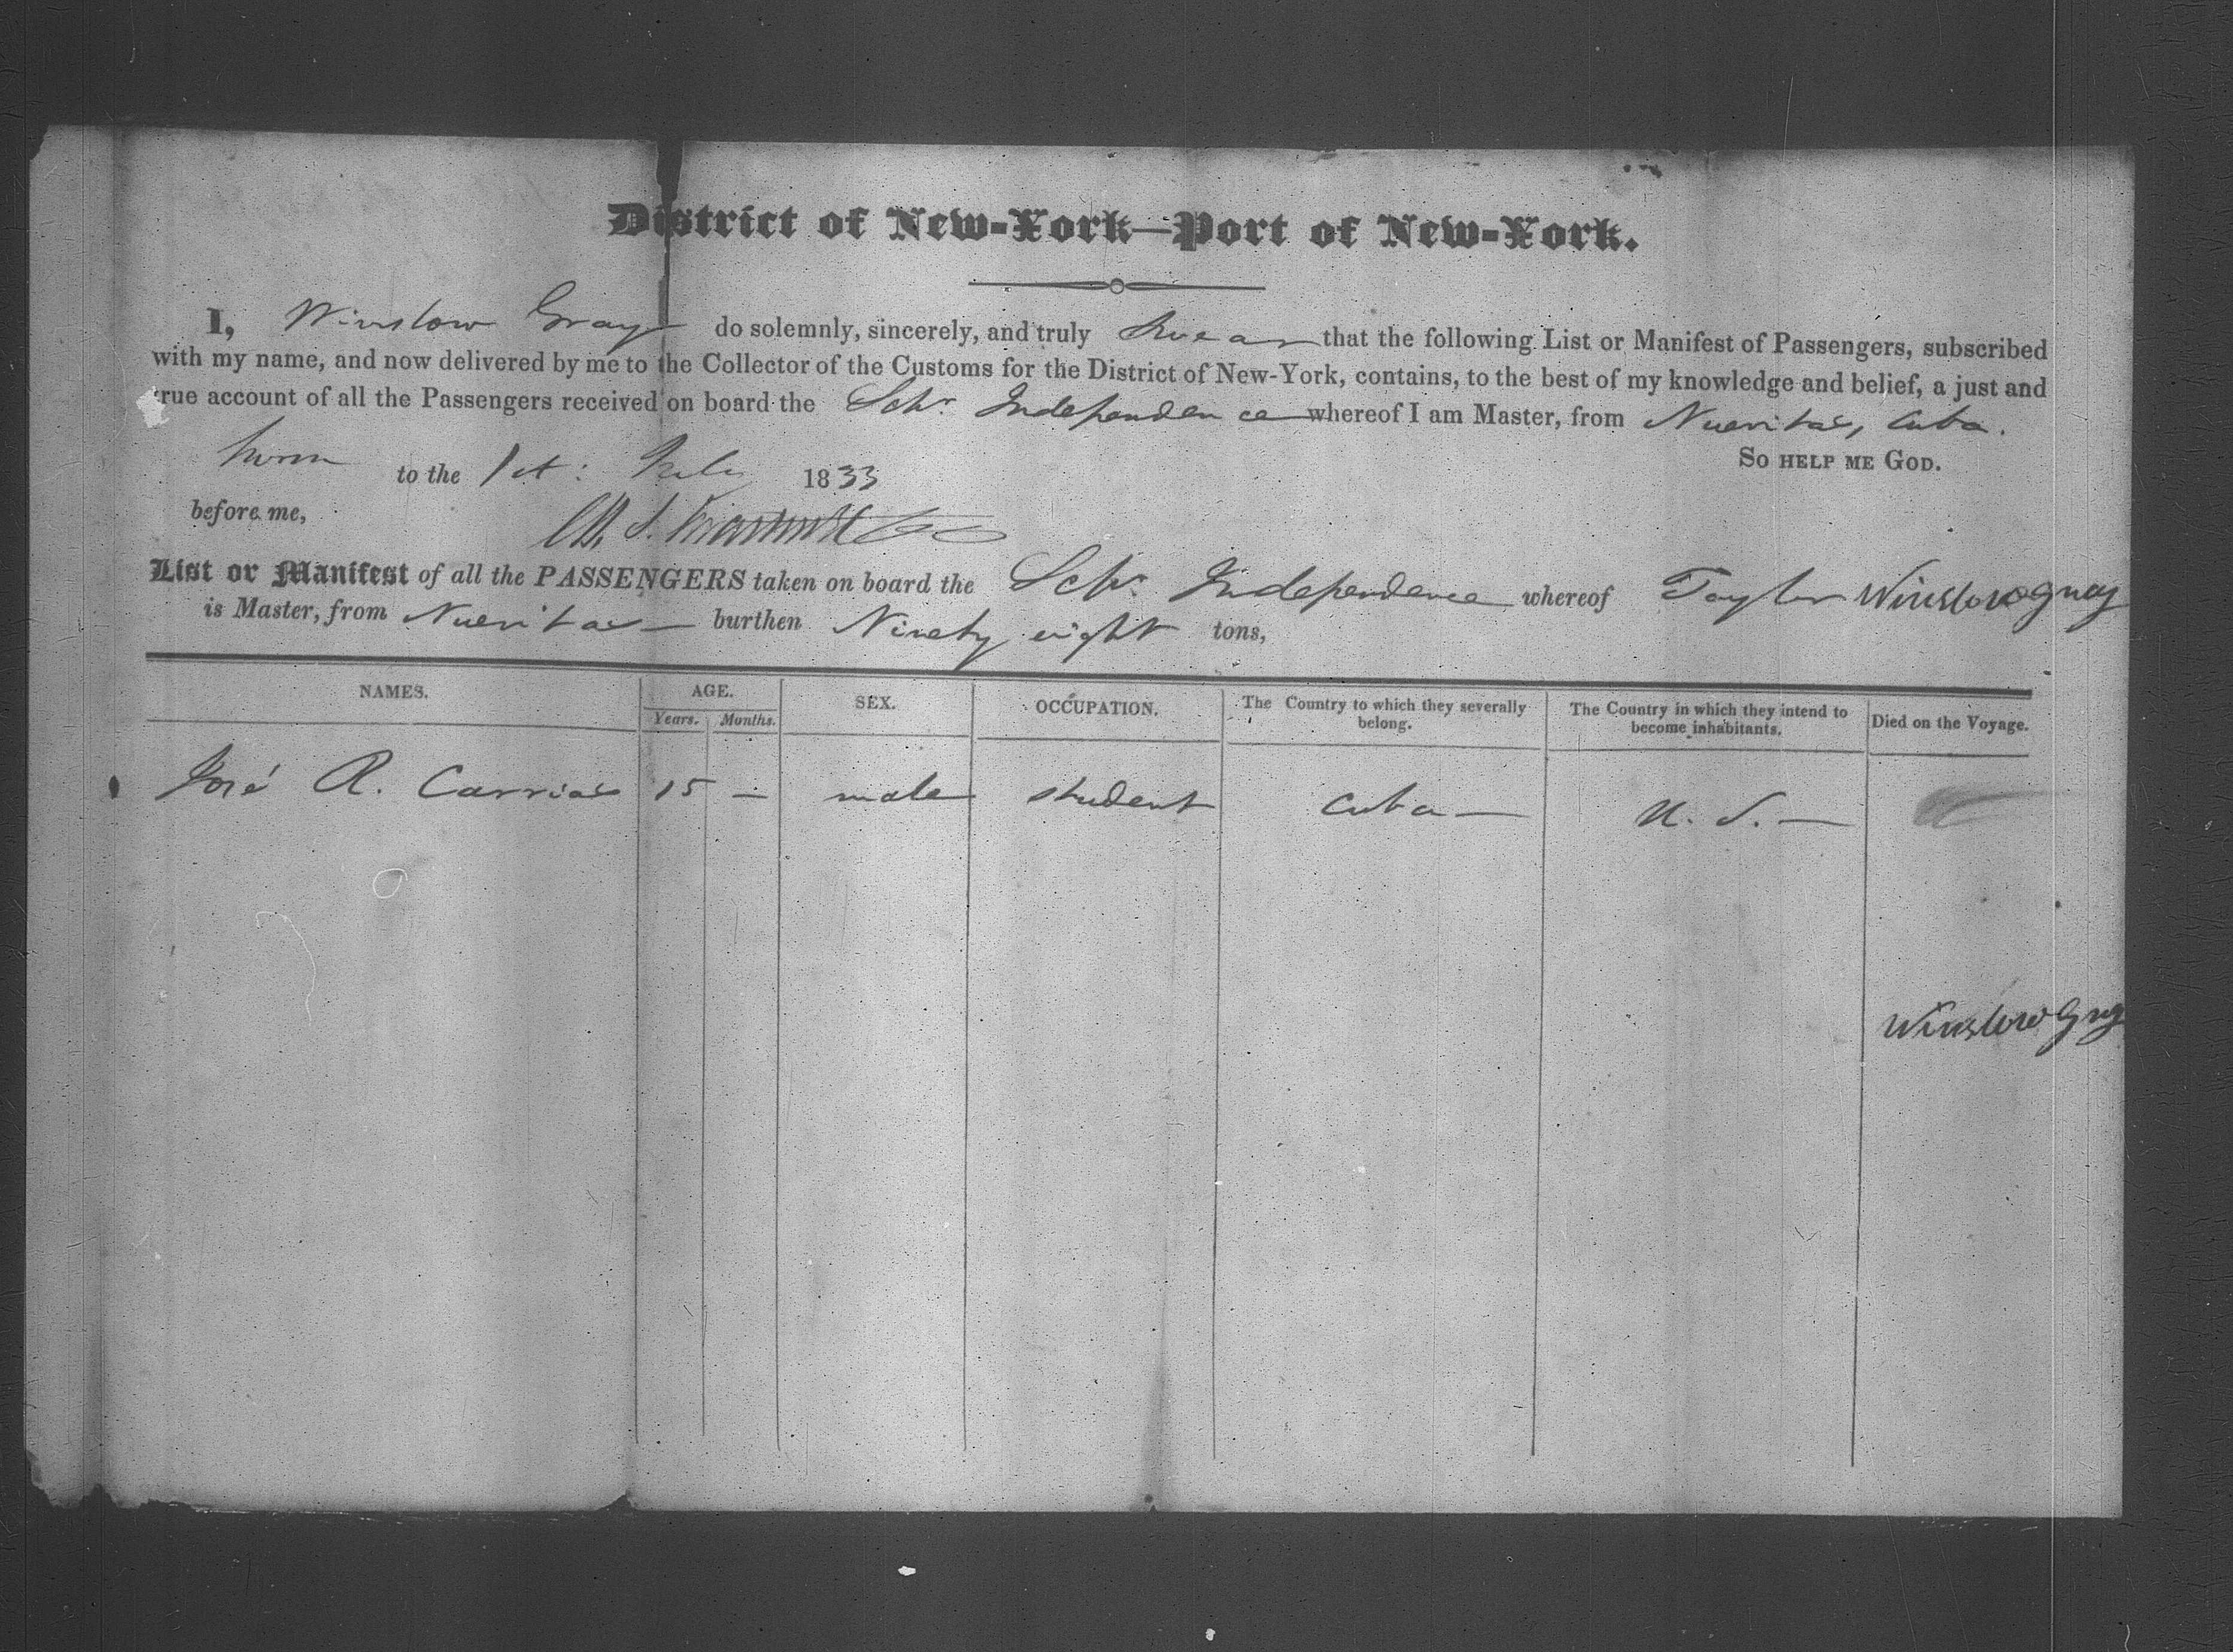 District of New-York—Port of New-York.
I, Winslow Gray do solemnly, sincerely, and truly swear that the following List or Manifest of Passengers, subscribed
with my name, and now delivered by me to the Collector of the Customs for the District of New-York, contains, to the best of my knowledge and belief, a just and
true account of all the Passengers received on board the Schr. Independence whereof I am Master, from Nuevitas, Cuba.
So help me God.
Sworn to the 1st: July 1833
before me,
List or Manifest of all the PASSENGERS taken on board the Schr. Independence whereof Taylor Winslow Gray
is Master, from Nuevitas — burthen Ninety eight tons,
NAMES. AGE. SEX. OCCUPATION. The Country to which they severally belong. The Country in which they intend to become inhabitants. Died on the Voyage.
Years. Months.
José R. Carrias 15 — male student Cuba — U. S. —
Winslow Gray